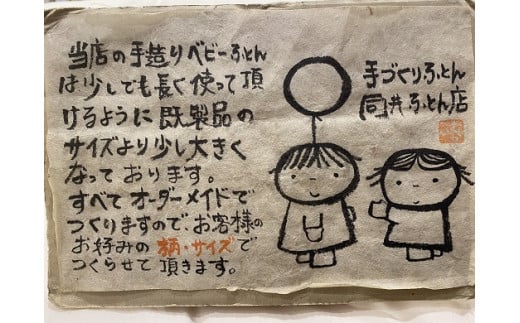 当店の手造りベビーふとん
は少しでも長く使って頂
けるように既製品の
サイズより少し大きく
なっております。
すべてオーダーメイドで
つくりますので、お客様の
お好みの柄・サイズで
つくらせて頂きます。
手づくりふとん
同井ふとん店